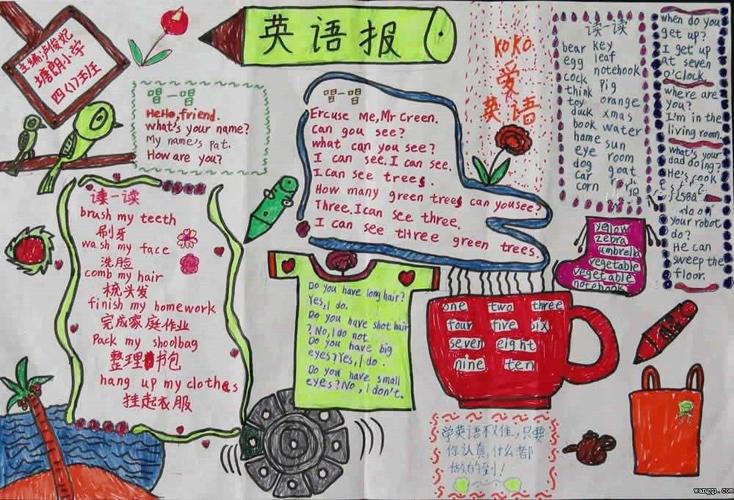 英语报
塘朗小学
四(1)班
唱一唱
Hello, friend.
what's your name?
My name's Pat.
How are you?
唱一唱
Ercuse me, Mr Creen.
can you see?
what can you see?
I can see. I can see.
I can see trees.
How many green trees can you see?
Three. I can see three.
I can see three green trees.
KOKO
爱
英语
读一读
bear key
egg leaf
cock notebook
think pig
toy orange
duck xmas
book water
home sun
eye room
dog goat
car
corn
when do you
get up?
I get up
at seven
o'clock.
where are
you?
I'm in the
living room.
what's your
dad doing?
He's cook
do
your robot
do?
He can
sweep the
floor.
读一读
brush my teeth
刷牙
wash my face
洗脸
comb my hair
梳头发
finish my homework
完成家庭作业
Pack my shoolbag
整理书包
hang up my clothes
挂起衣服
Do you have long hair?
Yes, I do.
Do you have shot hair
? No, I do not
Do you have big
eyes? Yes, I do.
Do you have small
eyes? No, I don't.
yellow
zebra
umbrella
vegetable
vegetable
notebook
one two three
four five six
seven eight
nine ten
学英语不难,只要
你认真,什么都
做的到!
wangqp.com